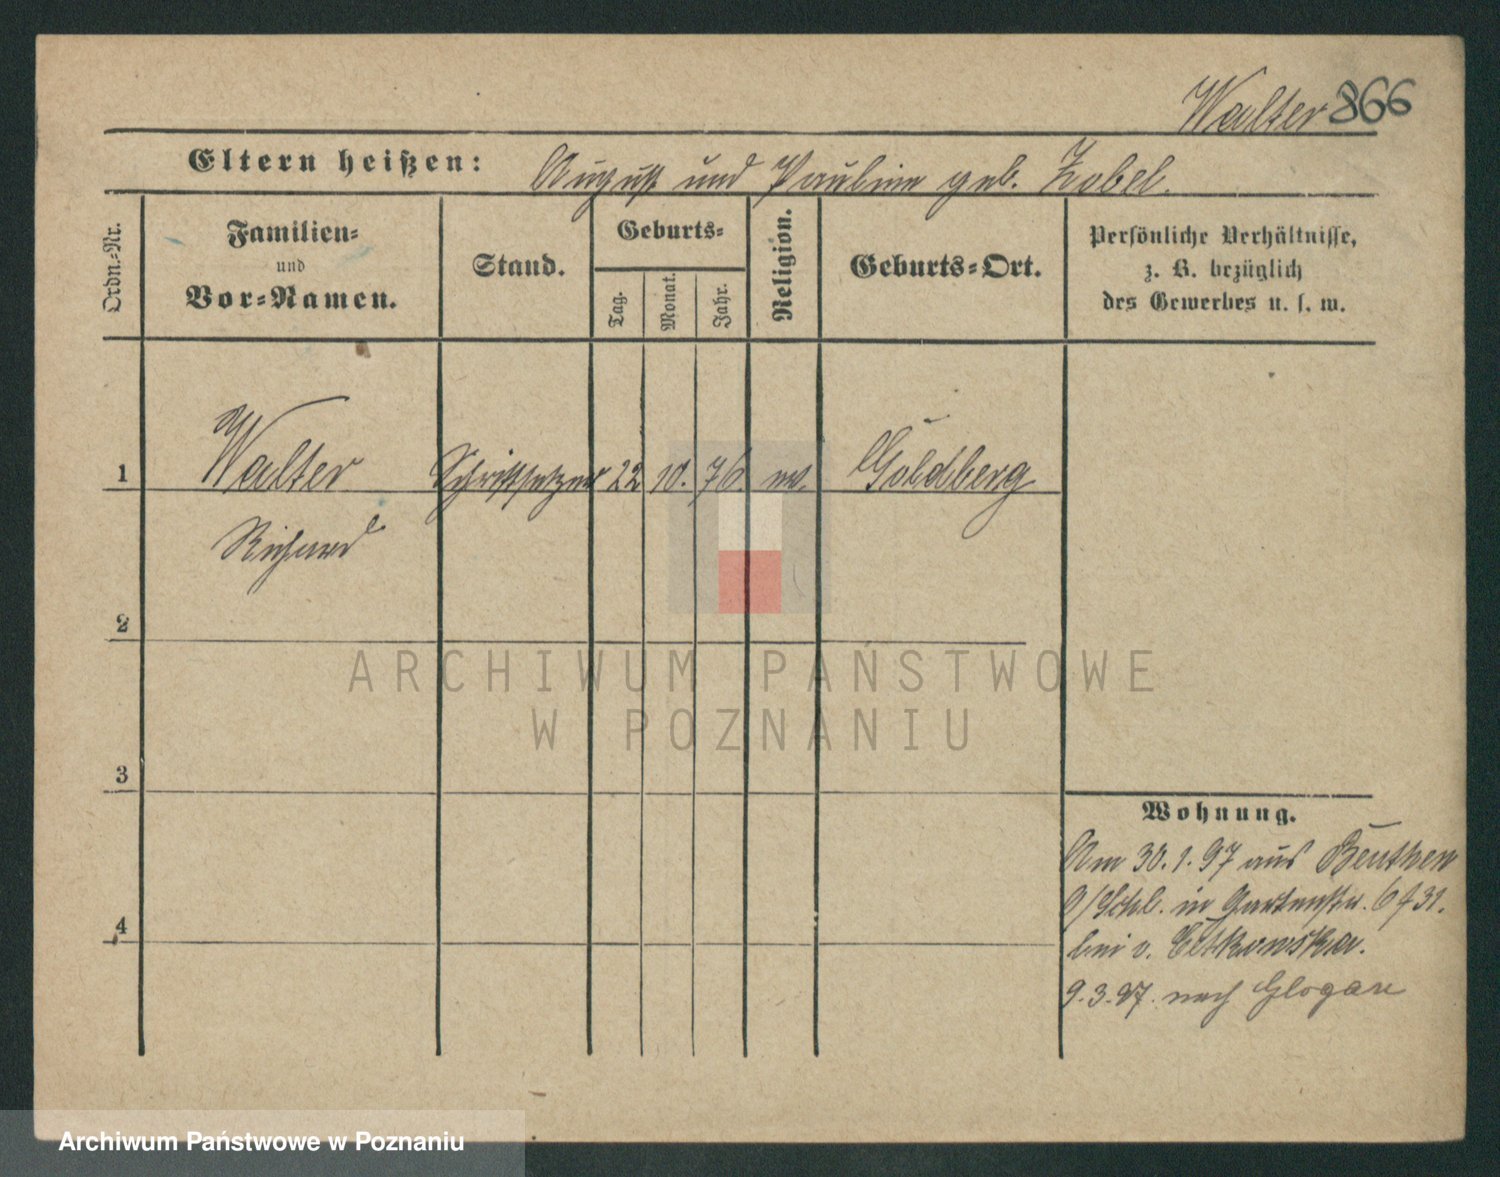 Walter 866
Eltern heißen: August und Pauline geb. Zobel.
Ordn.-Nr.
Familien-
und
Vor-Namen.
Stand.
Geburts-
Tag.
Monat.
Jahr.
Religion.
Geburts-Ort.
Persönliche Verhältnisse,
z. B. bezüglich
des Gewerbes u. s. w.
1 Walter Schriftsetzer 22 10. 76. ev. Goldberg
Richard
2
3
4
Wohnung.
Am 30.1.97 aus Beuthen
O/Schl. in Gartenstr. 6
bei v.
9.3.97. nach Glogau
ARCHIWUM PAŃSTWOWE
W POZNANIU
Archiwum Państwowe w Poznaniu